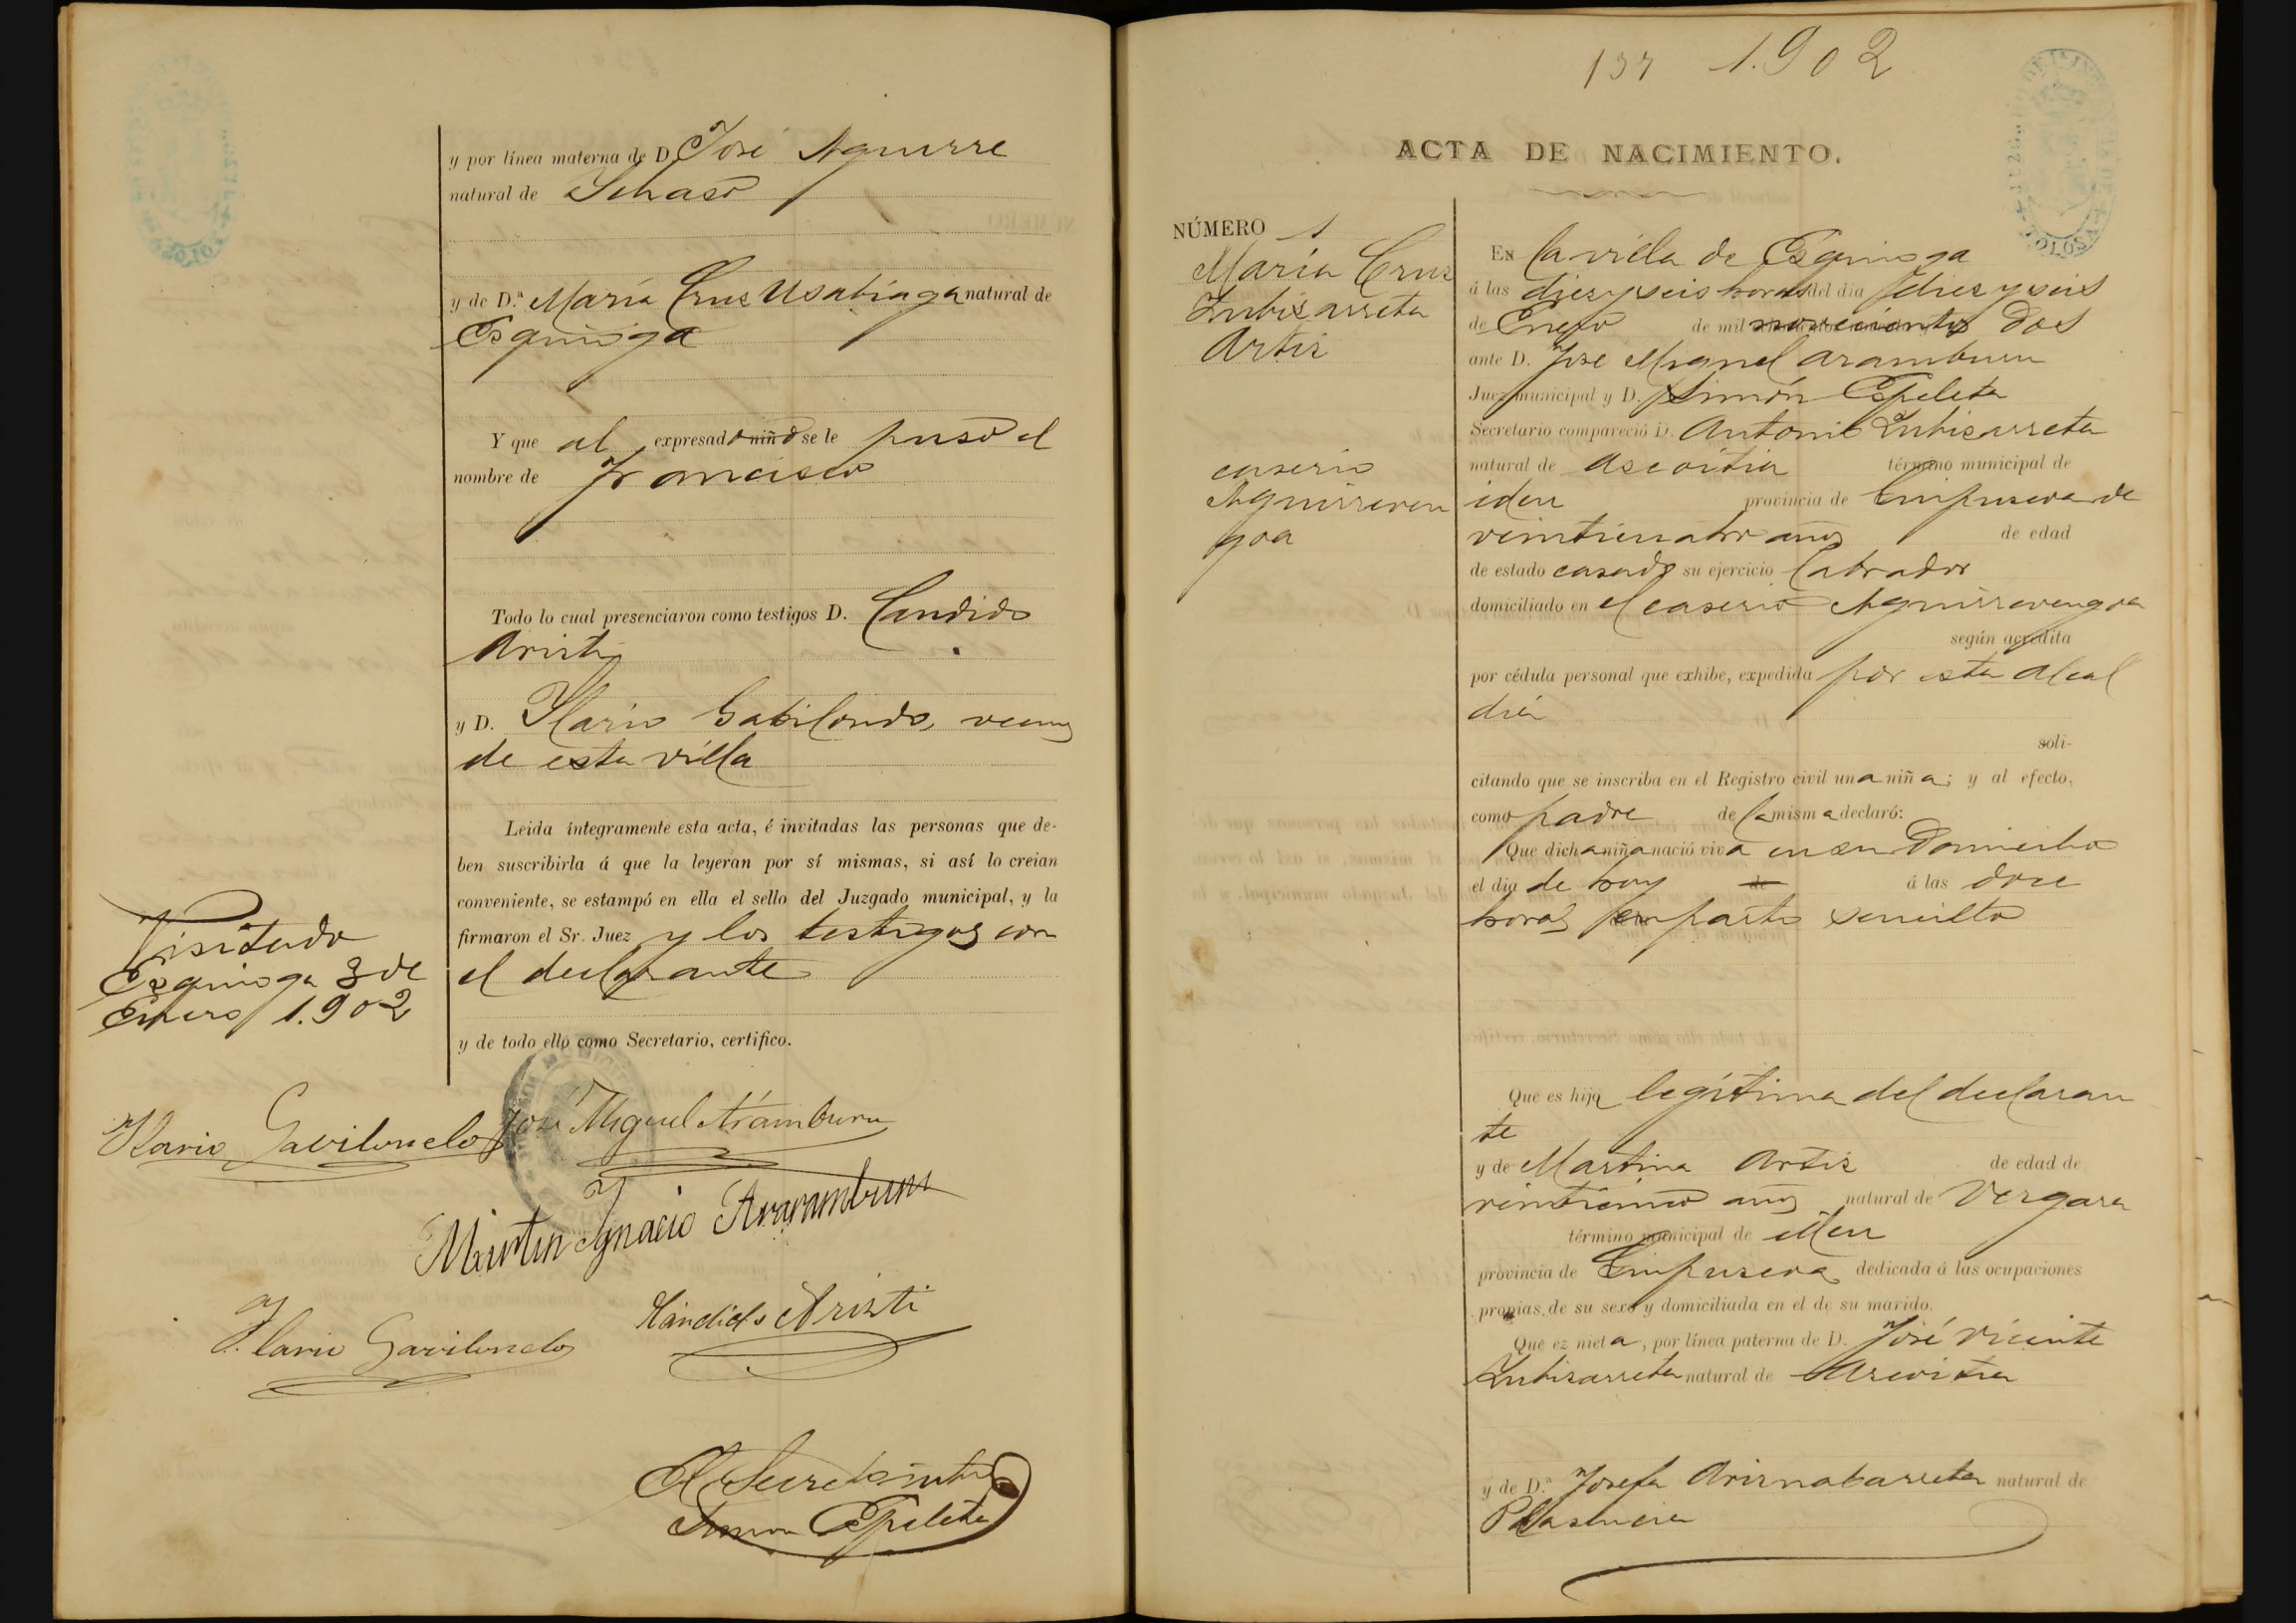 y por línea materna de D. José Aguirre
natural de Ichaso
y de D.ª María Cruz Usabiaga natural de
Esquioga
Y que al expresado niño se le puso el
nombre de Francisco
Todo lo cual presenciaron como testigos D. Candido
Aristi
y D. Ilario Gabilondo, vecinos
de esta villa
Leida íntegramente esta acta, é invitadas las personas que de-
ben suscribirla á que la leyeran por sí mismas, si así lo creian
conveniente, se estampó en ella el sello del Juzgado municipal, y la
firmaron el Sr. Juez y los testigos con
el declarante
y de todo ello como Secretario, certifico.
Visitado
Esquioga 3 de
Enero 1.902
Ilario Gavilondo José Miguel Aramburu
Martin Ignacio Araramburu
Ilario Gavilondo
Kándido Aristi
El Secretario
Simon Espeleta
137 1.902
ACTA DE NACIMIENTO.
NÚMERO 1
María Cruz
Zubizarreta
Artiz
caserio
Aguirreven
goa
En la villa de Esquioga
á las diez y seis horas del dia diez y seis
de Enero de mil novecientos dos
ante D. José Miguel Aramburu
Juez municipal y D. Simón Espeleta
Secretario compareció D. Antonio Zubizarreta
natural de Ascoitia término municipal de
idem provincia de Guipuzcoa de
veinticuatro años de edad
de estado casado su ejercicio labrador
domiciliado en el caserio Aguirrevengoa
según acredita
por cédula personal que exhibe, expedida por esta Alcal
día
soli-
citando que se inscriba en el Registro civil una niña; y al efecto,
como padre de la misma declaró:
Que dicha niña nació viva en su Domicilio
el dia de hoy de á las doce
horas en parto sencillo
Que es hija legítima del declaran
te
y de Martina Artiz de edad de
veinticinco años natural de Vergara
término municipal de idem
provincia de Guipuzcoa dedicada á las ocupaciones
propias de su sexo y domiciliada en el de su marido.
Que ez nieta, por línea paterna de D. José Vicente
Zubizarreta natural de Azcoitia
y de D.ª Josefa Ariznabarreta natural de
Plasencia